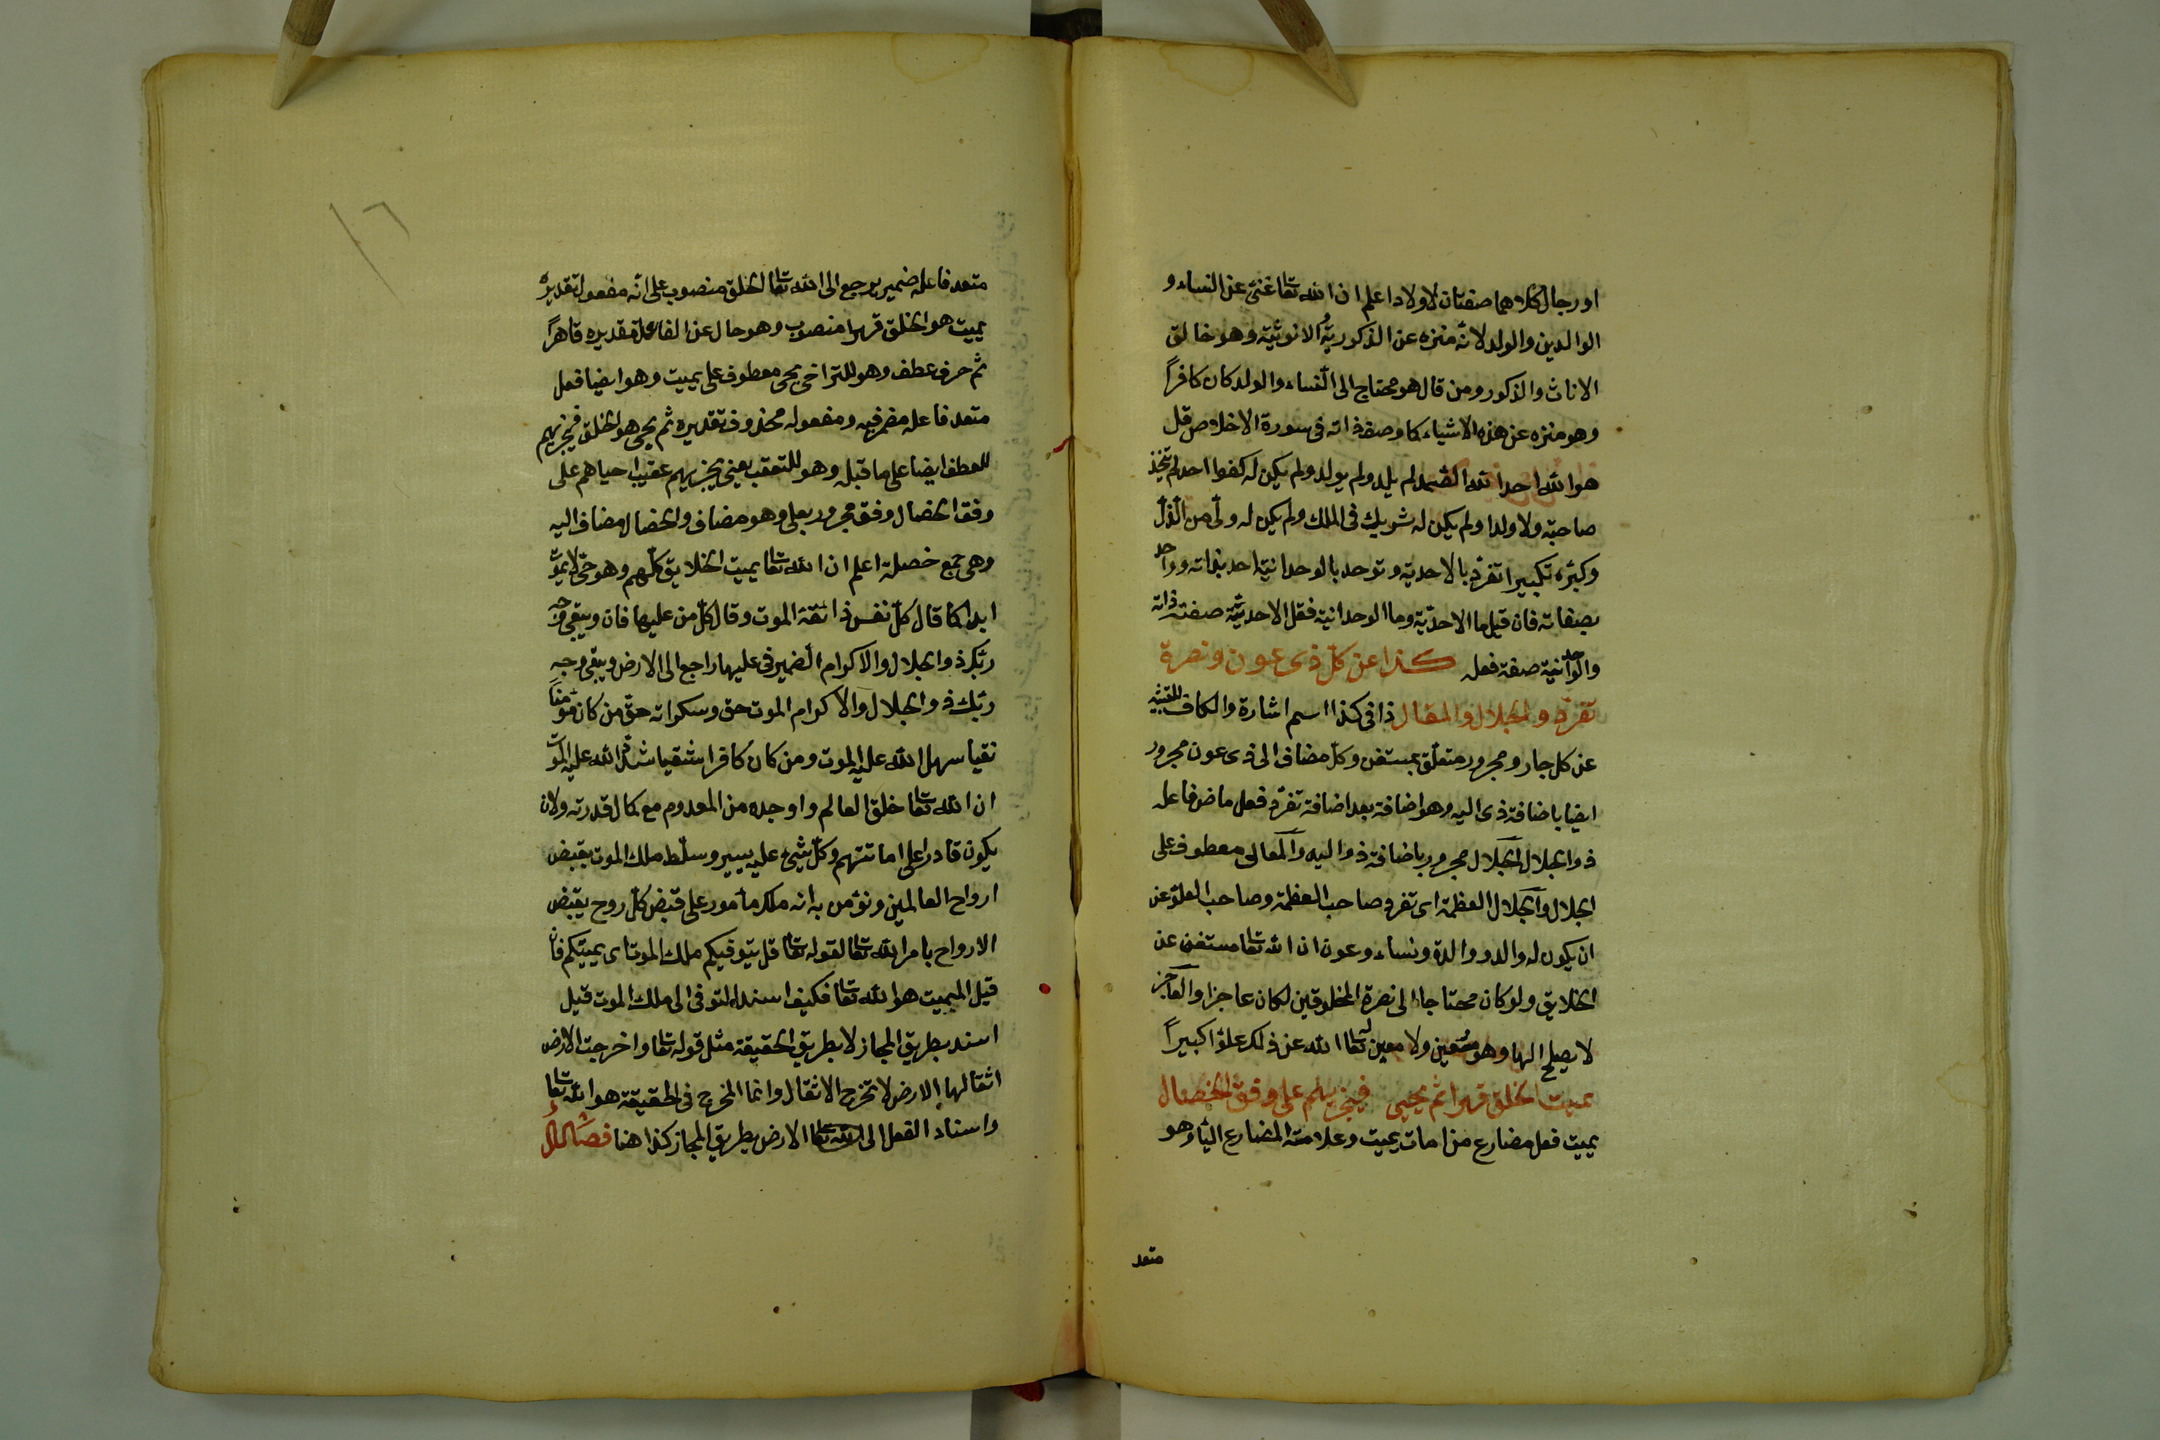 او رجال كلاهما صفتان لاولاد اعلم ان الله تعا غنى عن النساء و
الوالدين والولد لانه منزه عن الذكورية والانوثية وهو خالق
الاناث والذكور ومن قال هو محتاج الى النساء والولد كان كافراً
وهو منزه عن هذه الاشياء كما وصف ذاته فى سورة الاخلاص قل
هو الله احد الله الصمد لم يلد ولم يولد ولم يكن له كفوا احد لم يتخذ
صاحبة ولا ولدا ولم يكن له شريك فى الملك ولم يكن له ولى من الذل
وكبره تكبيرا تفرد بالاحدية وتوحد بالوحدانية احد بذاته وواحد
بصفاته فان قيل ما الاحدية وما الوحدانية فقل الاحدية صفة ذاته
والوحدانية صفة فعله كذا عن كل ذى عون ونصرة
تفرد ذو الجلال والمعال ذا فى كذا اسم اشارة والكاف للتشبيه
عن كل جار ومجرور متعلق بمستغن وكل مضاف الى ذى عون مجرور
ايضا باضافة ذى اليه وهو اضافة بعد اضافة تفرد فعل ماض فاعله
ذو الجلال الجلال مجرور باضافة ذو اليه والمعالى معطوف على
الجلال والجلال العظمة اى تفرد صاحب العظمة وصاحب العلو عن
ان يكون له والد ووالدة ونساء وعون ان الله تعا مستغن عن
الخلايق ولو كان محتاجا الى نصرة المخلوقين لكان عاجزا والعاجز
لا يصلح الها وهو معين ولا معين له تعا الله عن ذلك علوا كبيراً
يميت الخلق قهرا ثم يحيى فيجزيهم على وفق الخصال
يميت فعل مضارع من امات يميت وعلامة المضارع اليا وهو
متعد
١٦
متعد فاعله ضمير يرجع الى الله تعا الخلق منصوب على انه مفعول تقديره
يميت هو الخلق قهرا منصوب وهو حال عن الفاعل تقديره قاهراً
ثم حرف عطف وهو للتراخى يحى معطوف على يميت وهو ايضا فعل
متعد فاعله مضمر فيه ومفعوله محذوف تقديره ثم يحى هو الخلق فيجزيهم
للعطف ايضا على ما قبله وهو للتعقب يعنى يجزيهم عقيب احياهم على
وفق الخصال وفق مجرور بعلى وهو مضاف والخصال مضاف اليه
وهى جمع خصلة اعلم ان الله تعا يميت الخلايق كلهم وهو حى لا يموت
ابدا كما قال كل نفس ذائقة الموت وقال كل من عليها فان ويبقى وجه
ربك ذو الجلال والاكرام الضمير فى عليها راجع الى الارض ويبقى وجه
ربك ذو الجلال والاكرام الموت حق وسكراته حق من كان مؤمنا
نقيا سهل الله عليه الموت ومن كان كافرا شقيا شدد الله عليه الموت
ان الله تعا خلق العالم واوجده من المعدوم مع كمال قدرته ولان
يكون قادرا على اماتتهم وكل شئ عليه يسير وسلط ملك الموت بقبض
ارواح العالمين ونؤمن به انه ملك مأمور على قبض كل روح يقبض
الارواح بامر الله تعا لقوله تعا قل يتوفيكم ملك الموت اى يميتكم فان
قيل المميت هو الله تعا فكيف اسند التوفى الى ملك الموت قيل
اسند بطريق المجاز لا بطريق الحقيقة مثل قوله تعا واخرجت الارض
اثقالها الارض لا تخرج الاثقال وانما المخرج فى الحقيقة هو الله تعا
واسناد الفعل الى الله تعا الارض بطريق المجاز كذا هنا